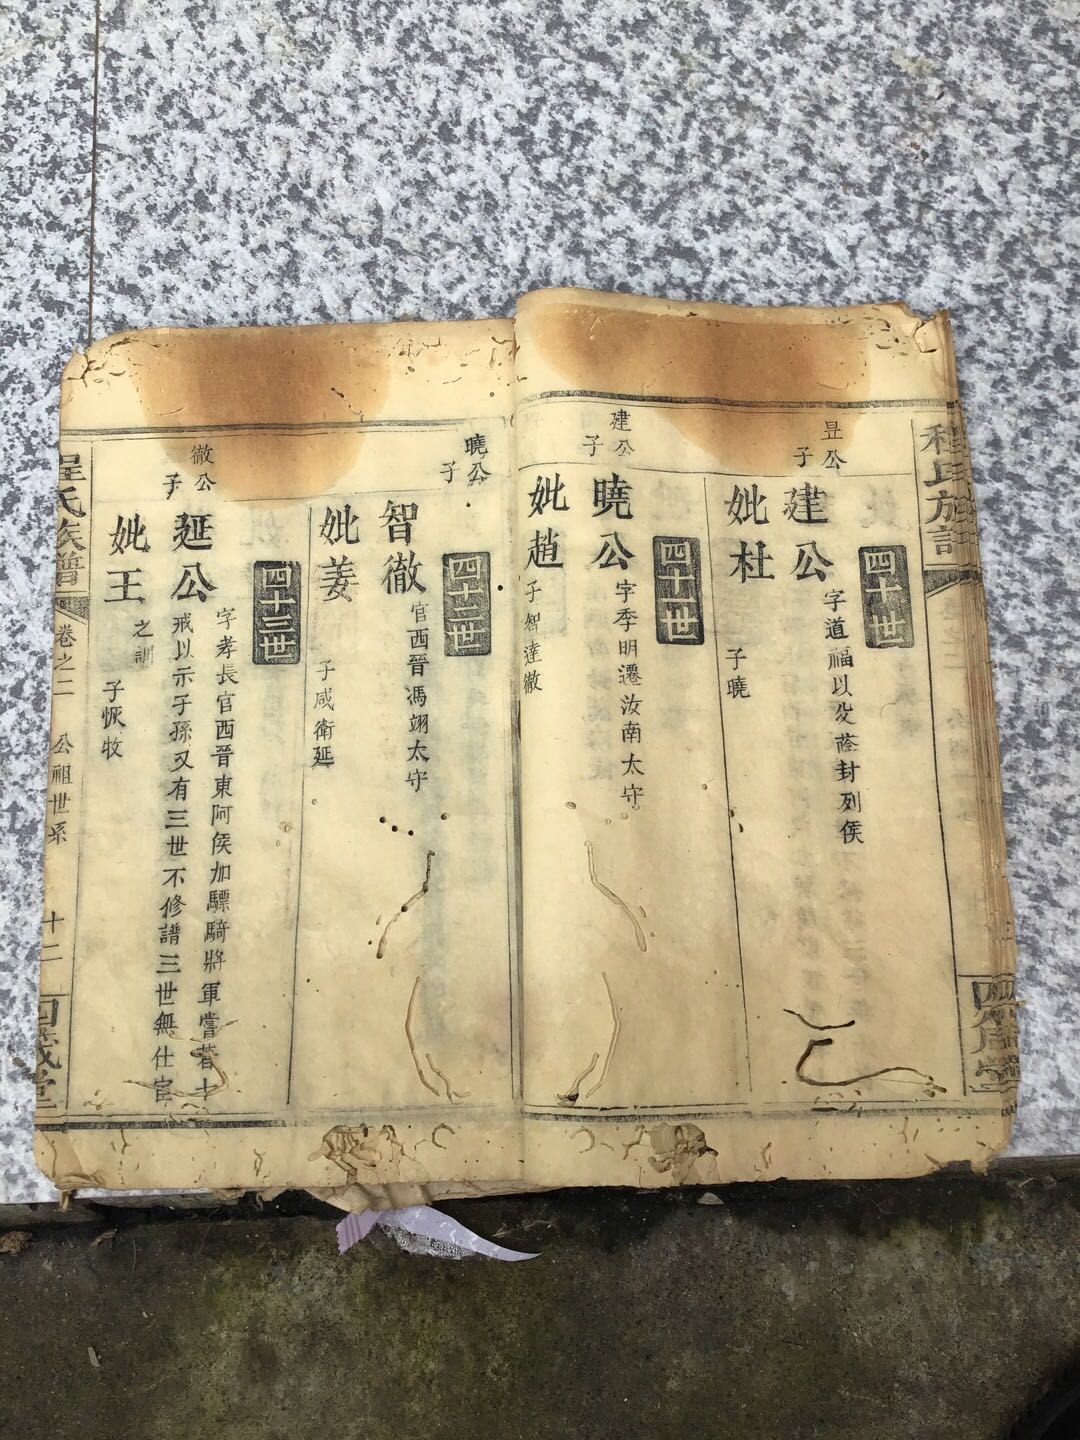 程氏族譜
四十世
昱公子
建公
字道福以父蔭封列侯
妣杜
子曉
四十一世
建公子
曉公
字季明遷汝南太守
妣趙
子智達徹
四十二世
曉公子
智徹
官西晉馮翊太守
妣姜
子咸衛延
四十三世
徹公子
延公
字孝長官西晉東阿侯加驃騎將軍嘗著十
戒以示子孫又有三世不修譜三世無仕宦
之訓
妣王
子恢牧
程氏族譜
卷之二
公祖世系
十二